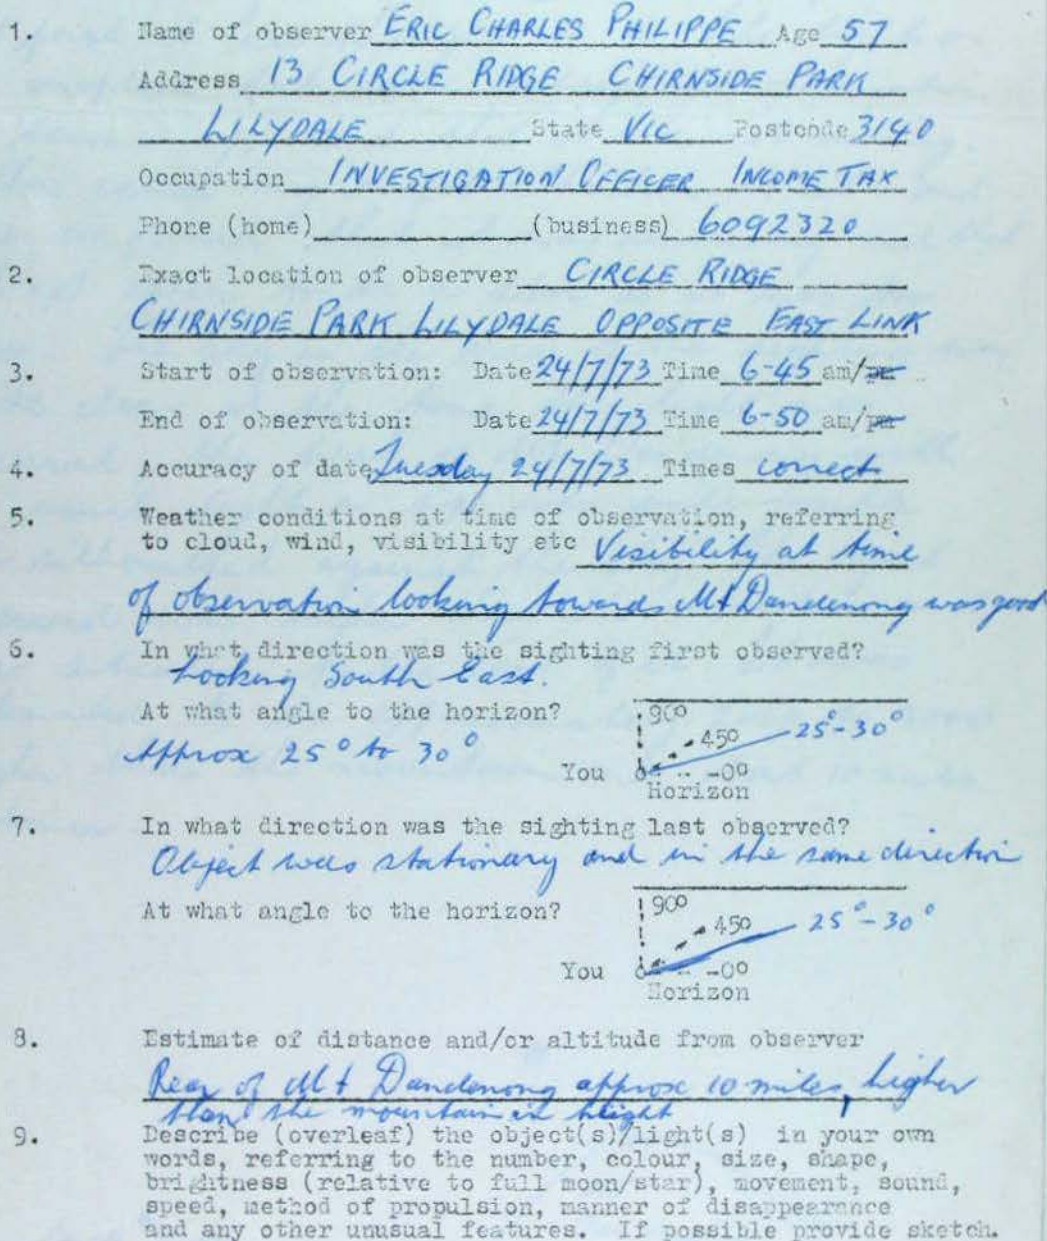 1. Name of observer ERIC CHARLES PHILIPPE Age 57
Address 13 CIRCLE RIDGE CHIRNSIDE PARK
LILYDALE State VIC Postcode 3140
Occupation INVESTIGATION OFFICER INCOME TAX
Phone (home) (business) 6092320
2. Exact location of observer CIRCLE RIDGE
CHIRNSIDE PARK LILYDALE OPPOSITE EAST LINK
3. Start of observation: Date 24/7/73 Time 6-45 am/pm
End of observation: Date 24/7/73 Time 6-50 am/pm
4. Accuracy of date Tuesday 24/7/73 Times correct
5. Weather conditions at time of observation, referring
to cloud, wind, visibility etc Visibility at time
of observation looking towards Mt Dandenong was good
6. In what direction was the sighting first observed?
Looking South East.
At what angle to the horizon? 90°
Approx 25° to 30° 45° 25°-30°
You -0°
Horizon
7. In what direction was the sighting last observed?
Object was stationary and in the same direction
At what angle to the horizon? 90°
45° 25°-30°
You -0°
Horizon
8. Estimate of distance and/or altitude from observer
Rear of Mt Dandenong approx 10 miles, higher
than the mountain in height
9. Describe (overleaf) the object(s)/light(s) in your own
words, referring to the number, colour, size, shape,
brightness (relative to full moon/star), movement, sound,
speed, method of propulsion, manner of disappearance
and any other unusual features. If possible provide sketch.